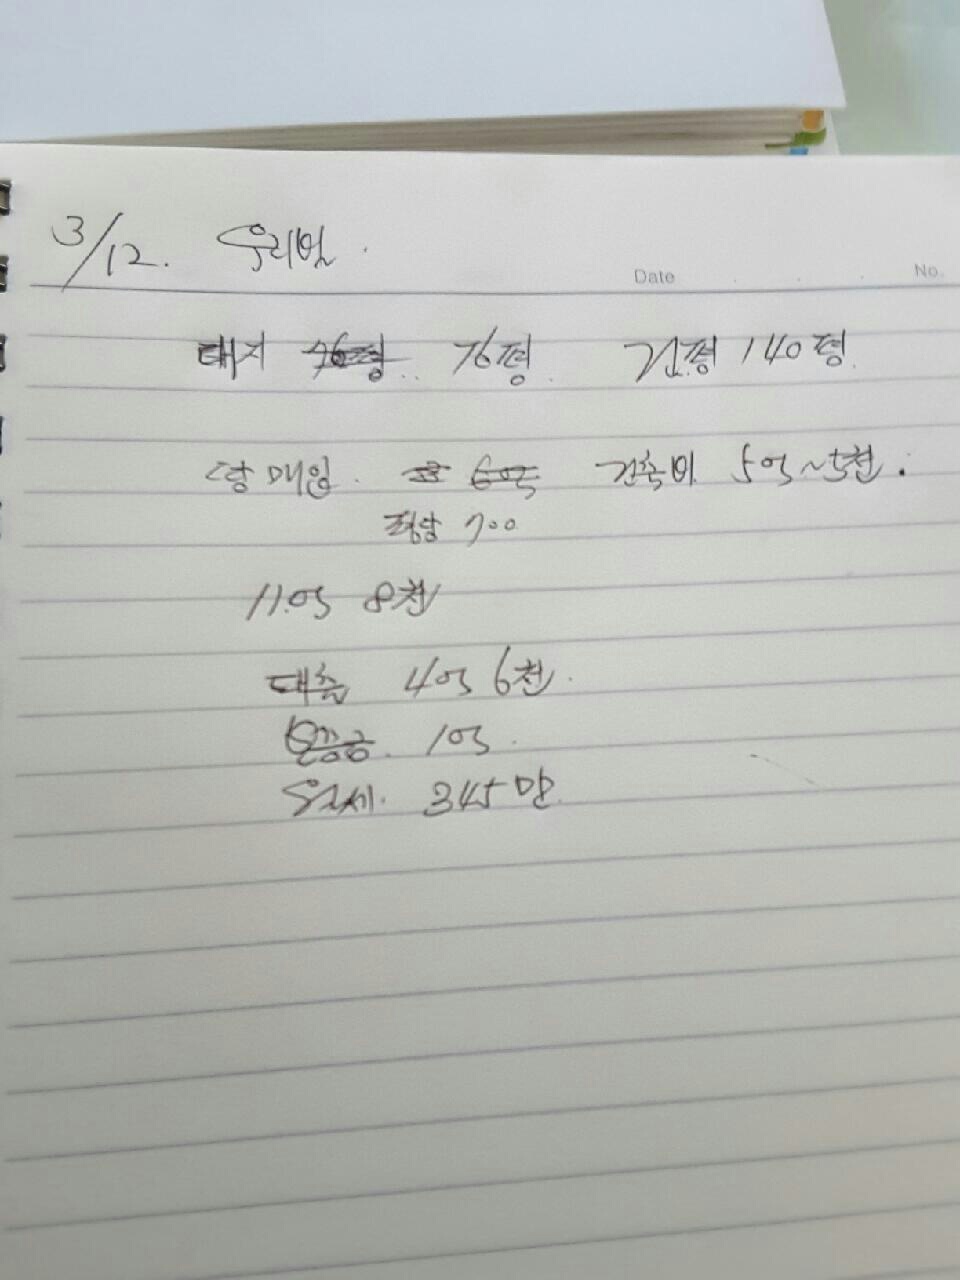 3/12. 우리빌.
Date . . . No.
대지 76평 76평 건평 140평.
땅매입. 6억 건축비 5억~5천.
평당 700
11억 8천
대출 4억 6천.
보증금. 1억.
월세. 345만.